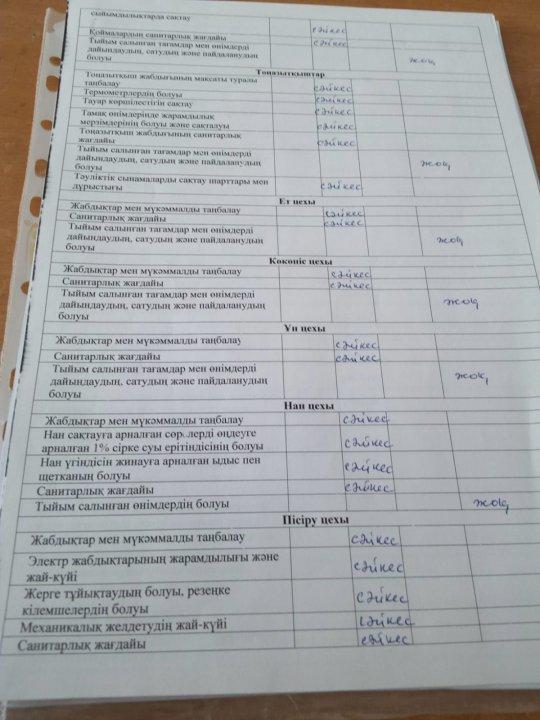 сыйымдылықтарда сақтау
Қоймалардың санитарлық жағдайы сәйкес
Тыйым салынған тағамдар мен өнімдерді сәйкес
дайындаудың, сатудың және пайдаланудың
болуы жоқ
Тоңазытқыштар
Тоңазытқыш жабдығының мақсаты туралы
таңбалау сәйкес
Термометрлердің болуы сәйкес
Тауар көршілестігін сақтау сәйкес
Тамақ өнімдерінде жарамдылық
мерзімдерінің болуы және сақталуы сәйкес
Тоңазытқыш жабдығының санитарлық
жағдайы сәйкес
Тыйым салынған тағамдар мен өнімдерді
дайындаудың, сатудың және пайдаланудың
болуы жоқ
Тәуліктік сынамаларды сақтау шарттары мен
дұрыстығы сәйкес
Ет цехы
Жабдықтар мен мүкәммалды таңбалау сәйкес
Санитарлық жағдайы сәйкес
Тыйым салынған тағамдар мен өнімдерді
дайындаудың, сатудың және пайдаланудың
болуы жоқ
Көкөніс цехы
Жабдықтар мен мүкәммалды таңбалау сәйкес
Санитарлық жағдайы сәйкес
Тыйым салынған тағамдар мен өнімдерді
дайындаудың, сатудың және пайдаланудың
болуы жоқ
Ұн цехы
Жабдықтар мен мүкәммалды таңбалау сәйкес
Санитарлық жағдайы сәйкес
Тыйым салынған тағамдар мен өнімдерді
дайындаудың, сатудың және пайдаланудың
болуы жоқ
Нан цехы
Жабдықтар мен мүкәммалды таңбалау сәйкес
Нан сақтауға арналған сөрелерді өңдеуге
арналған 1% сірке суы ерітіндісінің болуы сәйкес
Нан үгіндісін жинауға арналған ыдыс пен
щетканың болуы сәйкес
Санитарлық жағдайы сәйкес
Тыйым салынған өнімдердің болуы жоқ
Пісіру цехы
Жабдықтар мен мүкәммалды таңбалау сәйкес
Электр жабдықтарының жарамдылығы және
жай-күйі сәйкес
Жерге тұйықтаудың болуы, резеңке
кілемшелердің болуы сәйкес
Механикалық желдетудің жай-күйі сәйкес
Санитарлық жағдайы сәйкес